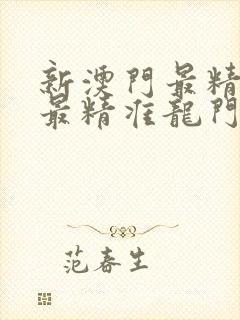 新澳門最精
最精准龍門
范春生